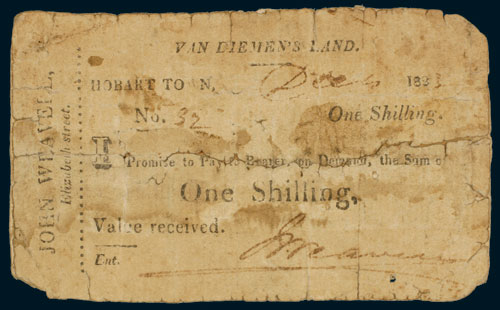 JOHN WEAVELL,
Elizabeth street.
VAN DIEMEN'S LAND.
HOBART TOWN, Dec 183
No. 32 One Shilling.
I Promise to Pay the Bearer, on Demand, the Sum of
One Shilling,
Value received.
Ent.